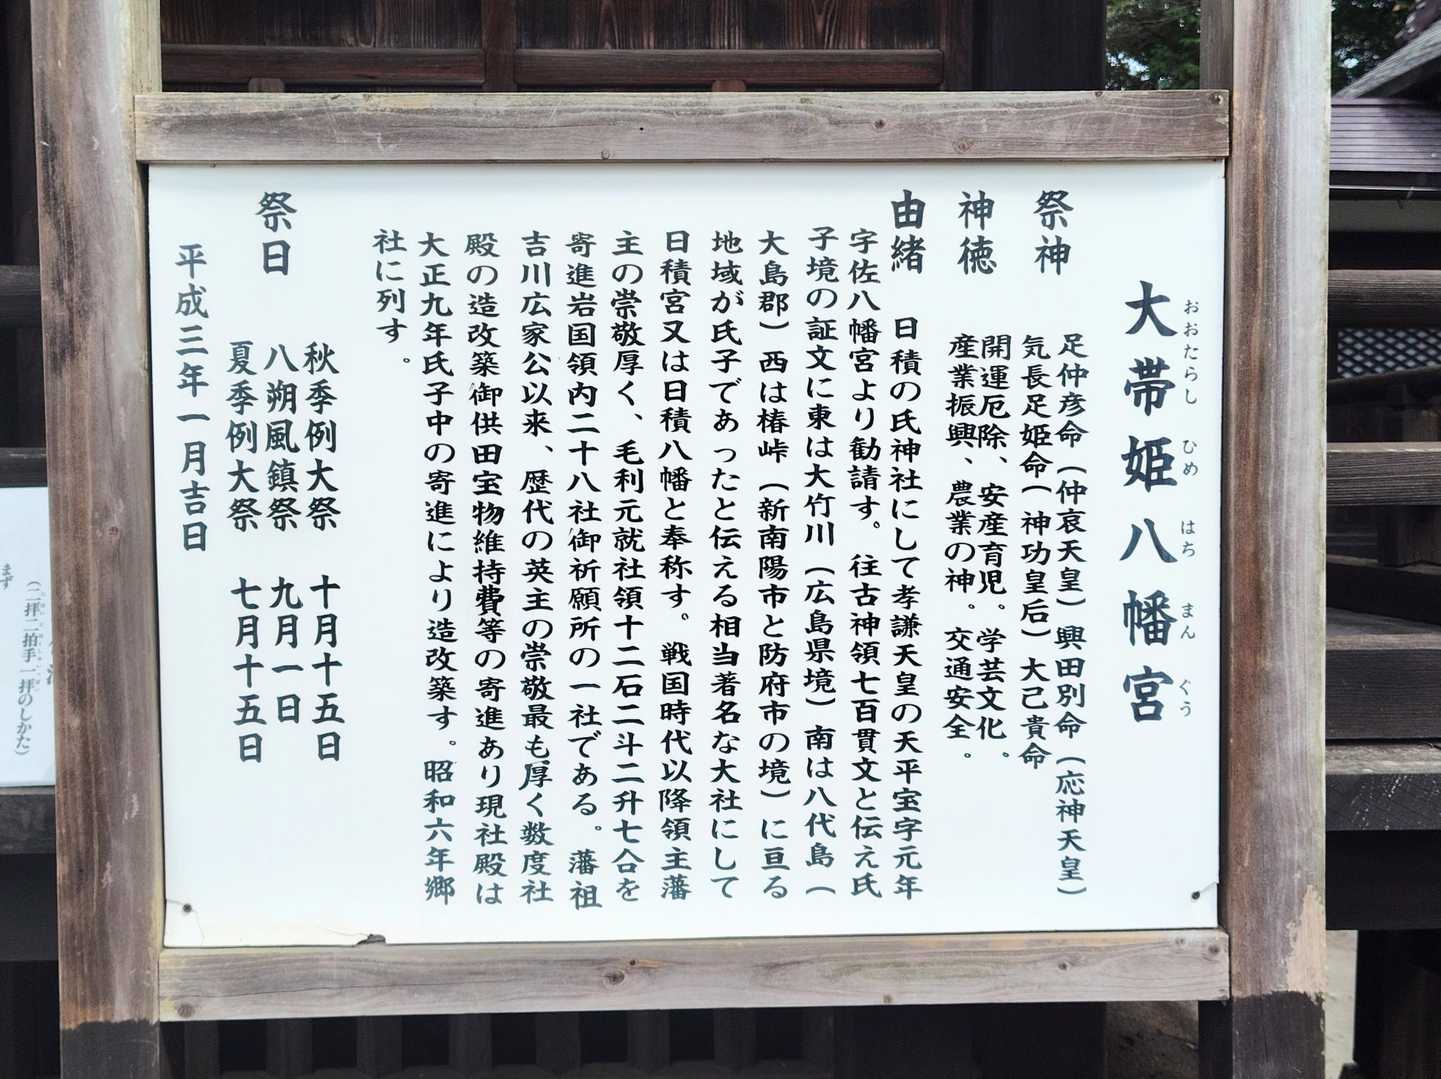 大帯姫八幡宮
おおたらし ひめ はち まん ぐう
祭神 足仲彦命（仲哀天皇）興田別命（応神天皇）
気長足姫命（神功皇后）大己貴命
神徳 開運厄除、安産育児。学芸文化。
産業振興、農業の神。交通安全。
由緒 日積の氏神社にして孝謙天皇の天平宝字元年
宇佐八幡宮より勧請す。往古神領七百貫文と伝え氏
子境の証文に東は大竹川（広島県境）南は八代島（
大島郡）西は椿峠（新南陽市と防府市の境）に亘る
地域が氏子であったと伝える相当著名な大社にして
日積宮又は日積八幡と奉称す。戦国時代以降領主藩
主の崇敬厚く、毛利元就社領十二石二斗二升七合を
寄進岩国領内二十八社御祈願所の一社である。藩祖
吉川広家公以来、歴代の英主の崇敬最も厚く数度社
殿の造改築御供田宝物維持費等の寄進あり現社殿は
大正九年氏子中の寄進により造改築す。昭和六年郷
社に列す。
祭日 秋季例大祭 十月十五日
八朔風鎮祭 九月一日
夏季例大祭 七月十五日
平成三年一月吉日
（二拝二拍手一拝のしかた）
まず